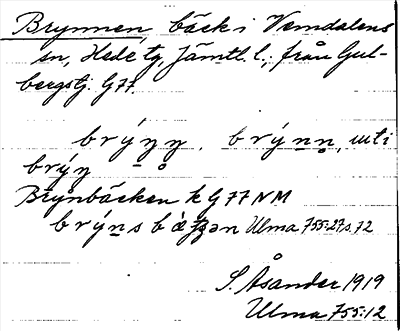 Brynnen, bäck i Vemdalens
sn, Hede tg, Jämtl. l.; från Gul-
bergstj. G77.
brýn̥n̥, brýn̲n̲̥, uti
brýn̲n̥
Brynbäcken k G77 NM
brýn̲s Ulma 755:27 s. 12
S. Åsander 1919
Ulma 755:12